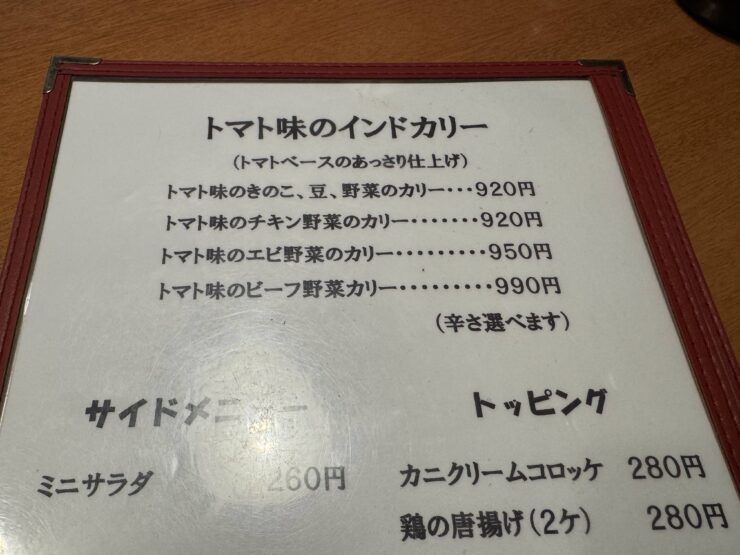 トマト味のインドカリー
(トマトベースのあっさり仕上げ)
トマト味のきのこ、豆、野菜のカリー・・・920円
トマト味のチキン野菜のカリー・・・・・・・920円
トマト味のエビ野菜のカリー・・・・・・・・・950円
トマト味のビーフ野菜カリー・・・・・・・・・990円
(辛さ選べます)
サイドメニュー
ミニサラダ 260円
トッピング
カニクリームコロッケ 280円
鶏の唐揚げ(2ケ) 280円